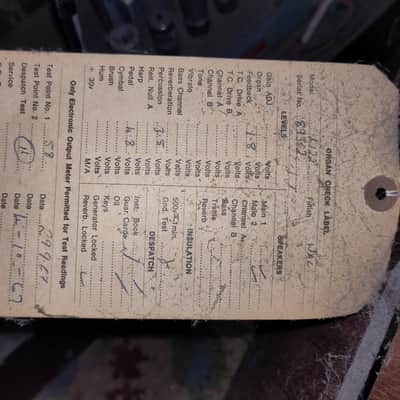 ORGAN CHECK LABEL
Model Finish WAL
Serial No. 89562
LEVELS
SPEAKERS
Gain ADJ Volts Main 1
Drain Volts Main 2
Feedback 1.8 Volts Channel A
T.C. Drive A Volts Channel B
T.C. Drive B Volts Bass
Channel A Volts Treble
Channel B Volts Reverb
Tone Volts
Vibrato Volts
INSULATION
Bass Channel Volts
Reverberation Volts 500v min.
Percussion 3.5 Volts Gnd. Test
Reit. Null A Volts
DESPATCH
Harp Volts
Pedal 4.8 Volts Inst. Book
Cymbal Volts Guar. Card
Brush Volts Oil
Hum Volts Keys
+ 30v M/A Generator Locked
Reverb. Locked
Only Electronic Output Meter Permitted for Test Readings
Test Point No. 1 58 Date 29.9.67
Test Point No. 2 Date
Despatch Test 11 Date 4-10-67
Service Date